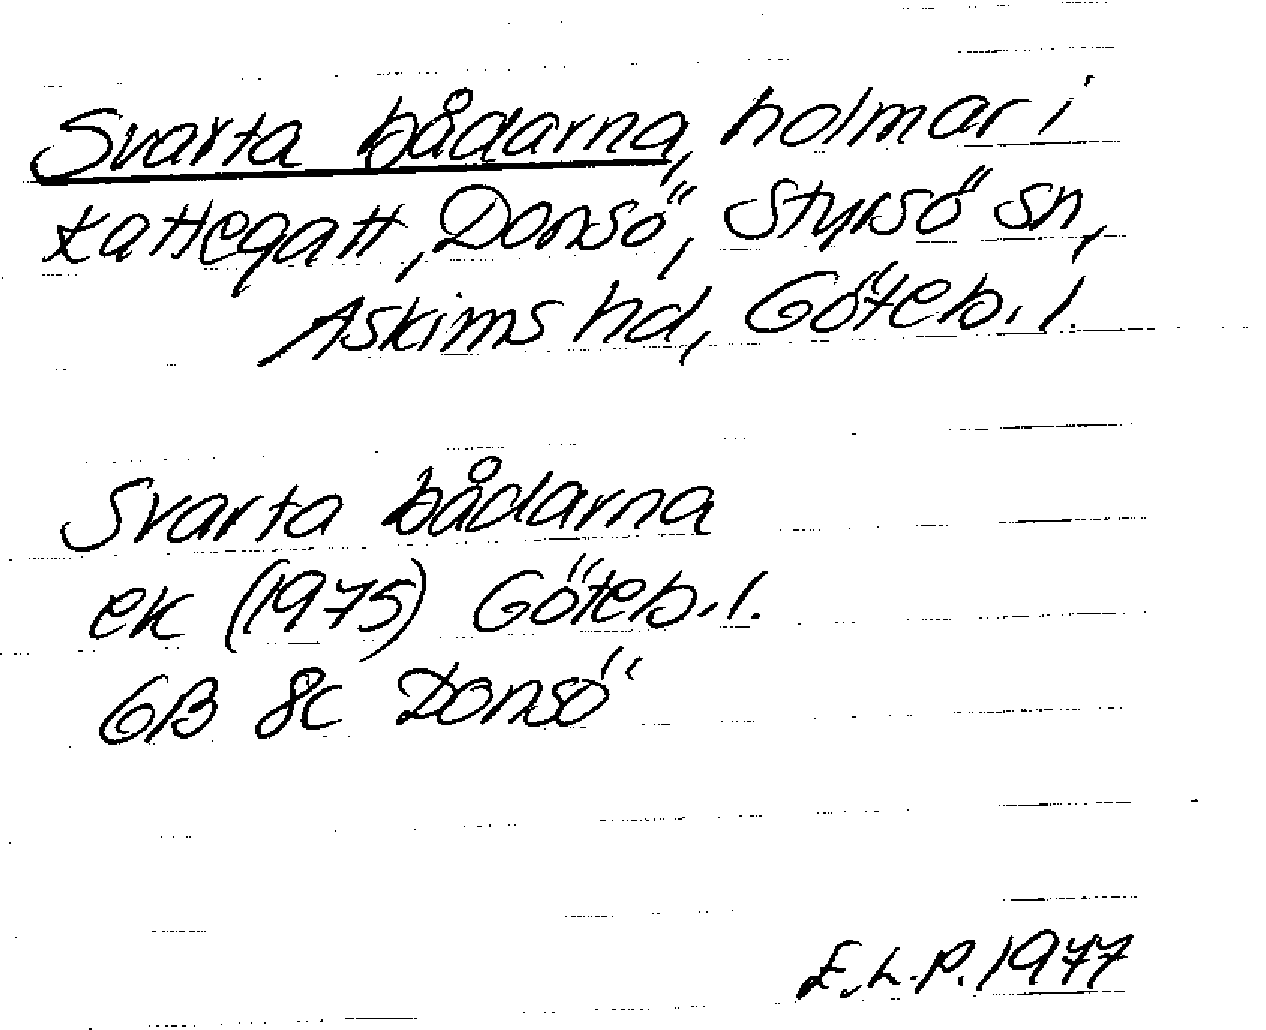 Svarta bådarna, holmar i
Kattegatt, Donsö, Styrsö sn,
Askims hd, Göteb. l.
Svarta bådarna
ek (1975) Göteb. l.
GB 8c Donsö
E.L.P. 1977